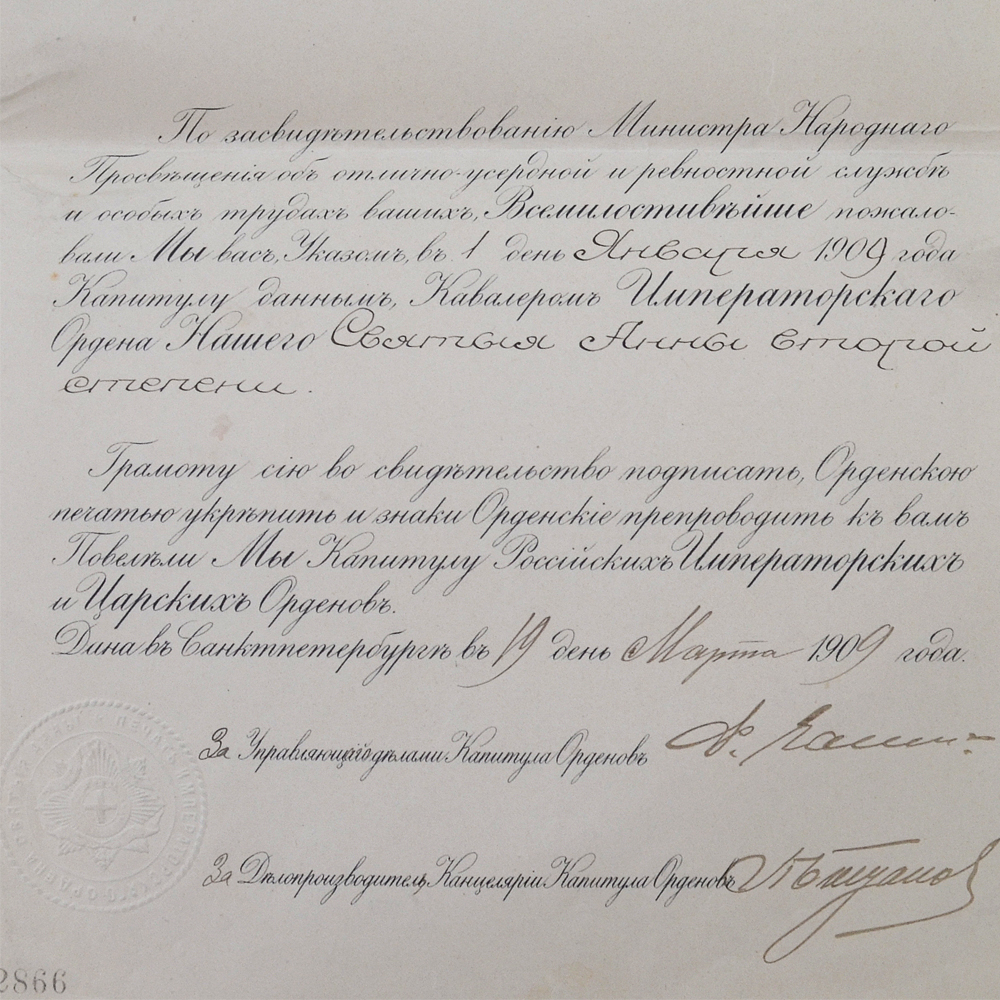 По засвидѣтельствованію Министра Народнаго
Просвѣщенія объ отлично-усердной и ревностной службѣ
и особыхъ трудахъ вашихъ, Всемилостивѣйше пожало-
вали Мы васъ, Указомъ, въ 1 день Января 1909 года
Капитулу даннымъ, Кавалеромъ Императорскаго
Ордена Нашего Святыя Анны второй
степени.
Грамоту сію во свидѣтельство подписать, Орденскою
печатью укрѣпить и знаки Орденскіе препроводить къ вамъ
Повелѣли Мы Капитулу Россійскихъ Императорскихъ
и Царскихъ Орденовъ.
Дана въ Санктпетербургѣ въ 19 день Марта 1909 года.
За Управляющій дѣлами Капитула Орденовъ
За Дѣлопроизводитель Канцеляріи Капитула Орденовъ
2866